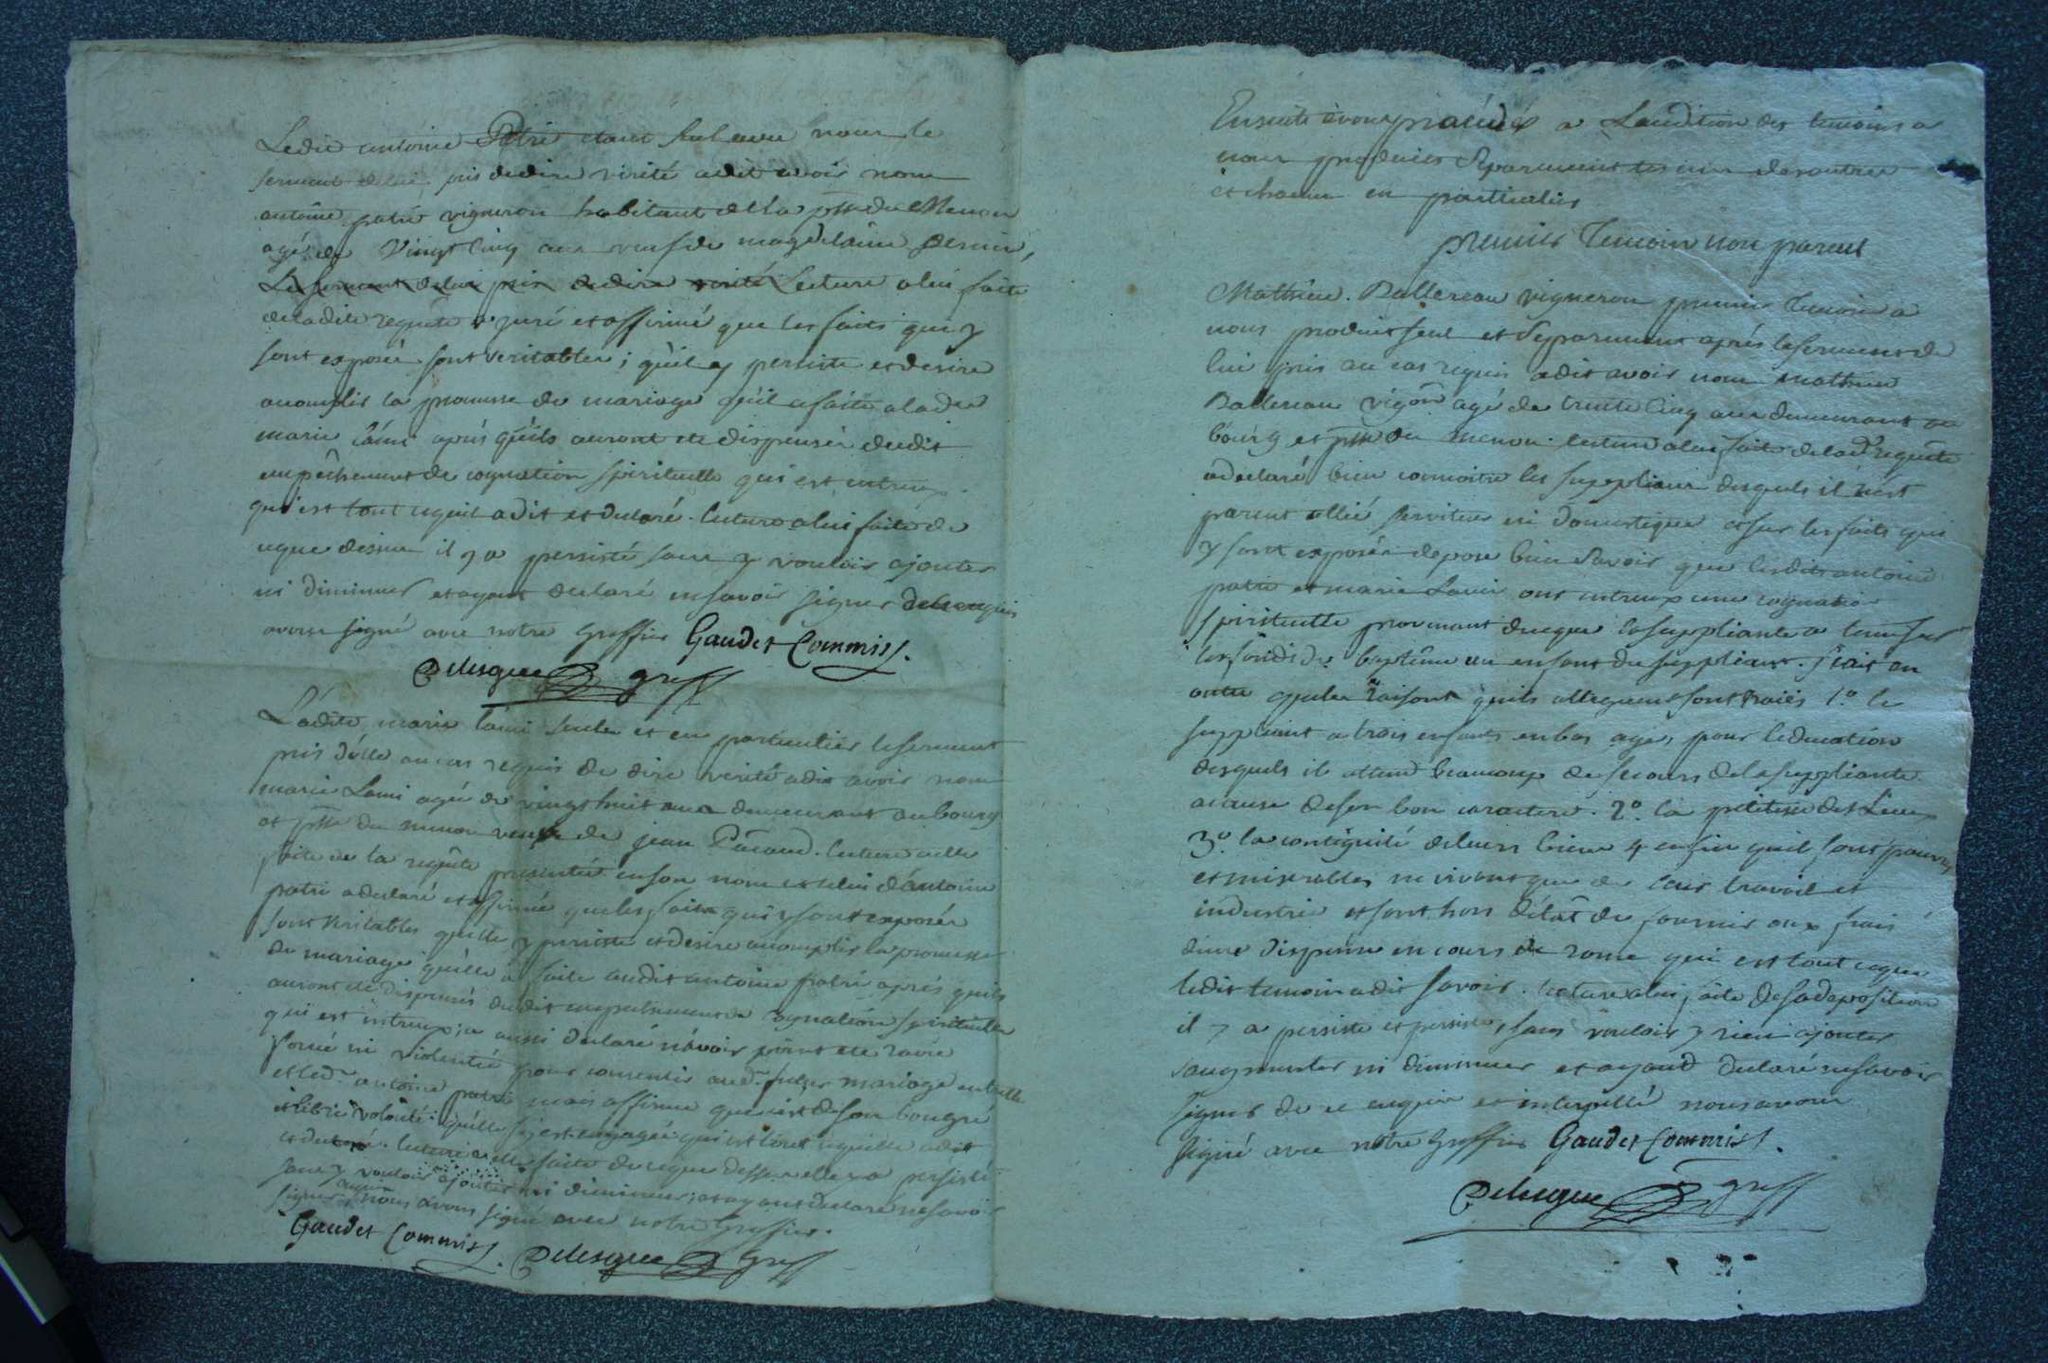 Ledit antoine Patri etant seul avec nous le
serment de lui pris de dire vérité a dit avoir nom
antoine patri vigneron habitant de la psse du Menou
agé de Vingt Cinq ans veuf de magdelaine
Le serment de lui pris de dire verité Lecture a lui faite
de ladite requête a juré et affirmé que les faits qui y
sont exposés sont veritables; qu'il y persiste et desire
accomplir la promesse de mariage qu'il a faite a lade
marie lami après qu'ils auront eté dispensés dudit
empêchement de cognation spirituelle qui est entreux
qui est tout ce qu'il a dit et declaré. lecture a lui faite de
ce que dessus il y a persisté sans y vouloir ajouter
ni diminuer et ayant declaré ne savoir signer de ce enquis
avons signé avec notre Greffier Gaudet Commiss.
Delesque greff
Ladite marie lami seule et en particulier le serment
pris d'elle au cas requis de dire verité a dit avoir nom
marie Lami agée de vingt huit ans demeurant au bourg
et psse du menou veuve de jean. lecture a elle
faite de la requête presentée en son nom et celui d'antoine
patri a declaré et affirmé que les faits qui y sont exposés
sont veritables qu'elle y persiste et desire accomplir la promesse
de mariage qu'elle a faite audit antoine patri après qu'ils
auront eté dispensés dudit empêchement de cognation spirituelle
qui est entreux; a aussi declaré n'avoir point eté ravie
forcée ni violentée pour consentir aud. futur mariage entre elle
et led. antoine patri mais affirme que c'est de son bon gré
et libre volonté qu'elle s'y est engagée qui est tout ce qu'elle a dit
et declaré. lecture a elle faite de ce que dessus elle y a persisté
sans y vouloir ajouter ni diminuer; et ayant declaré ne savoir
signer nous avons signé avec notre Greffier.
Gaudet Commiss. Delesque greff
Ensuite avons procédé a L'audition des temoins a
nous produits Separement les uns des autres
et chacun en particulier
premier Temoin non parent
Mathieu Ballereau vigneron premier Temoin a
nous produit seul et separement après le serment de
lui pris au cas requis a dit avoir nom mathieu
Ballereau vigon agé de trente Cinq ans demeurant au
bourg et psse du menou. lecture a lui faite de lade requête
a declaré bien connoitre les suppliants desquels il n'est
parent allié serviteur ni domestique et sur les faits qui
y sont exposés depose bien savoir que lesdits antoine
patri et marie Lami ont entreux une cognation
spirituelle provenant de ce que la suppliante a tenu sur
les fonds de baptême un enfant du suppliant. sait en
outre que les raisons qu'ils alleguent sont vraies 1.o le
suppliant a trois enfants en bas âges pour l'education
desquels il attend beaucoup de secours de la suppliante
a cause de son bon caractere. 2.o la petitesse des Lieux
3.o la contiguité de leurs biens 4 enfin qu'il sont pauvres
et miserables ne vivant que de leur travail et
industrie et sont hors d'état de fournir aux frais
d'une dispense en cours de rome qui est tout ce que
ledit temoin a dit savoir. lecture a lui faite de sa deposition
il y a persisté et persiste, sans vouloir y rien ajouter
augmenter ni diminuer et ayant declaré ne savoir
signer de ce enquis et interpellé nous avons
signé avec notre Greffier Gaudet Commiss.
Delesque greff